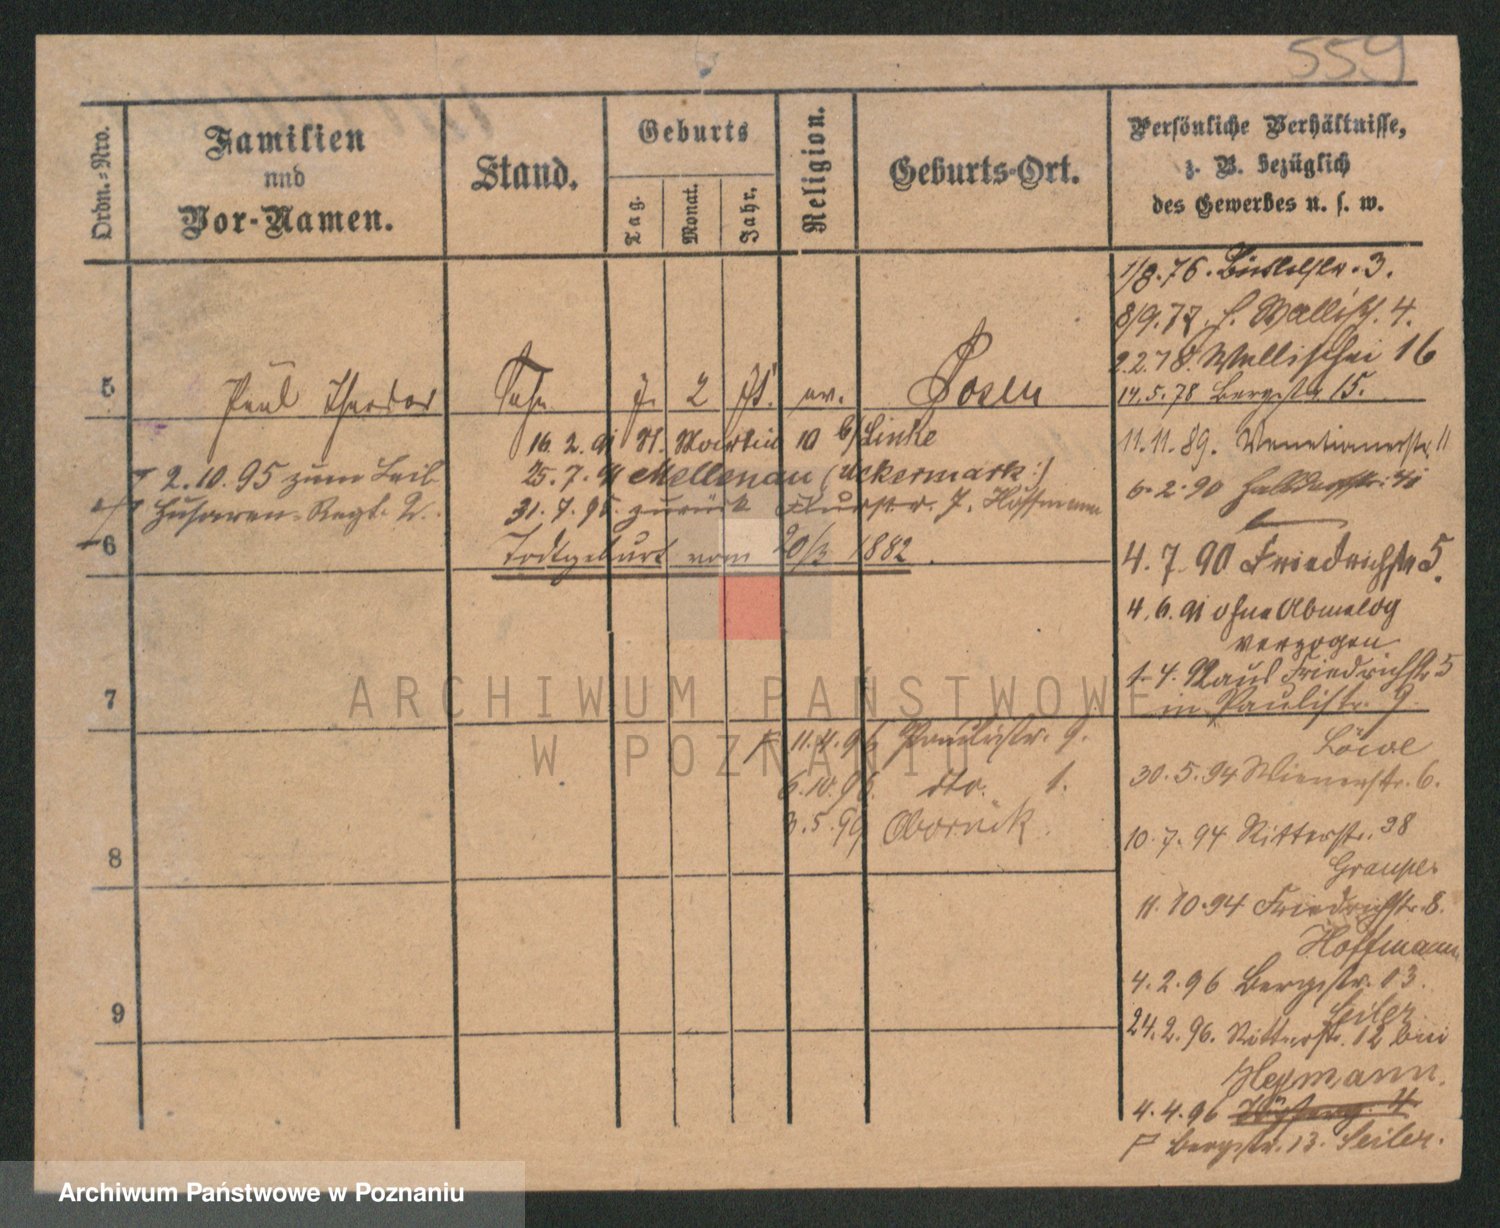 559
Ordn.=Nro.
Familien
und
Vor-Namen.
Stand.
Geburts
Tag.
Monat.
Jahr.
Religion.
Geburts-Ort.
Persönliche Verhältnisse,
z. B. bezüglich
des Gewerbes u. s. w.
1/8.76.
8/9.77. Wallisch. 4.
2.2.78. Wallischei 16
5
Paul Theodor
2
ev.
Posen
14.5.78 Bergstr 15.
16. 2. 91 St. Martin 10 b/Linke
11.11.89. Venetianerstr. 11
2.10.95 zum Leib
25.7.91 Mellenau (Uckermark:)
6.2.90
Husaren-Regt. 2.
31.7.95 zurück J. Hoffmann
6
Todtgeburt vom 20/3 1882.
4.7.90 Friedrichstr 5.
4.6.91 ohne Abmeldg
verzogen
7
Friedrichstr 5
in Paulistr. 9.
11.4.96 Paulistr. 9.
Löwe
30.5.94 Wienerstr. 6.
6.10.96. dto. 1.
3.5.99 Obornik.
10.7.94 Ritterstr. 38
8
11.10.94 Friedrichstr. 8.
Hoffmann
9
4.2.96 Bergstr. 13.
Seiler
24.2.96. Ritterstr. 12 bei
Heymann.
4.4.96
Bergstr. 13. Seiler.
ARCHIWUM PAŃSTWOWE
W POZNANIU
Archiwum Państwowe w Poznaniu